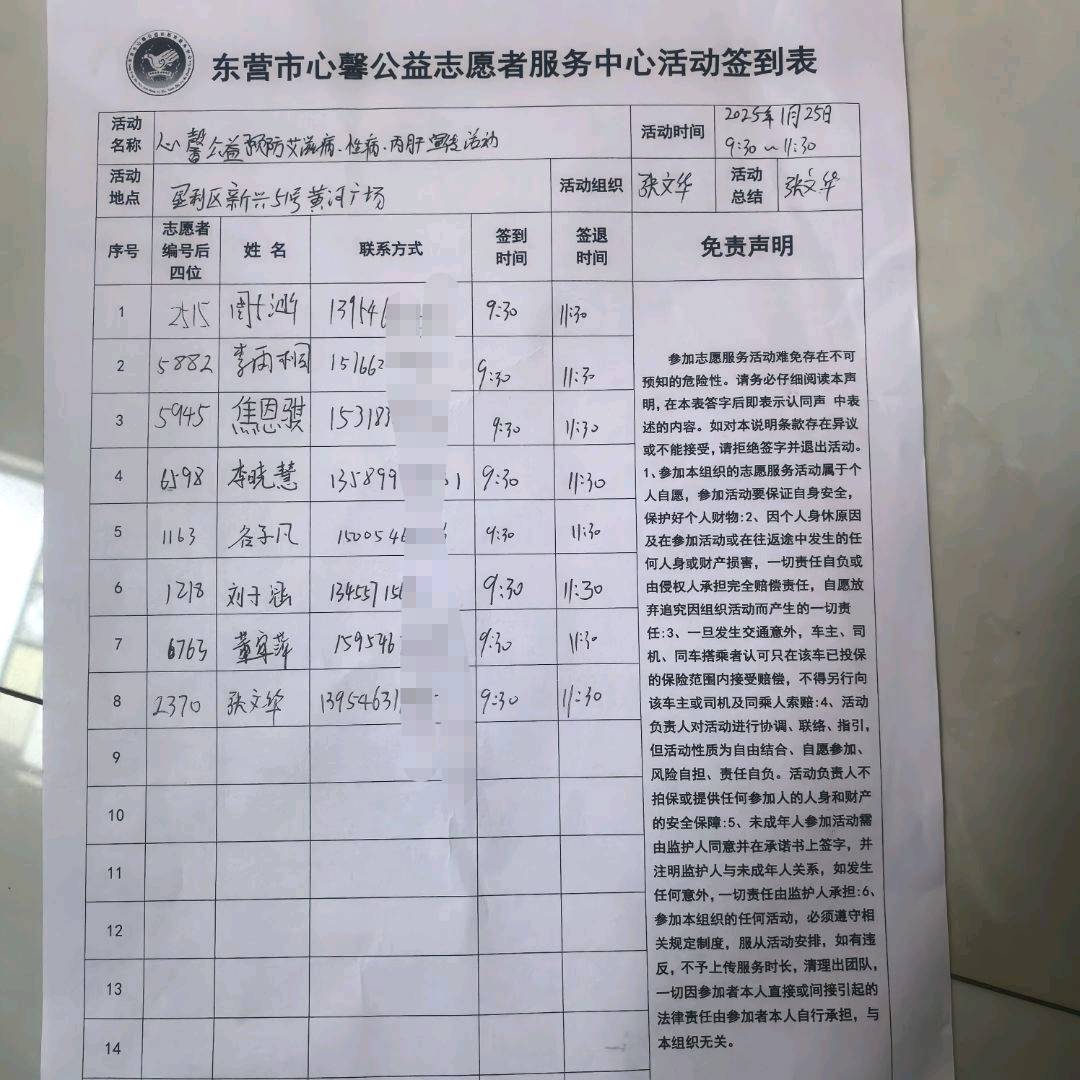 东营市心馨公益志愿者服务中心活动签到表
活动名称 心馨公益预防艾滋病、性病、丙肝宣传活动 活动时间 2025年1月25日 9:30~11:30
活动地点 垦利区新兴51号黄河广场 活动组织 张文华 活动总结 张文华
序号 志愿者编号后四位 姓名 联系方式 签到时间 签退时间 免责声明
1 2515 139546 9:30 11:30
2 5882 李雨桐 151662 9:30 11:30
3 5945 焦恩骐 153183 9:30 11:30
4 6598 李晓慧 135899 1 9:30 11:30
5 1163 子凡 1500546 9:30 11:30
6 1218 刘子涵 13455715 9:30 11:30
7 6763 董 萍 159546 9:30 11:30
8 2370 张文华 13954631 9:30 11:30
9
10
11
12
13
14
参加志愿服务活动难免存在不可
预知的危险性。请务必仔细阅读本声
明,在本表签字后即表示认同声 中表
述的内容。如对本说明条款存在异议
或不能接受,请拒绝签字并退出活动。
1、参加本组织的志愿服务活动属于个
人自愿，参加活动要保证自身安全，
保护好个人财物:2、因个人身休原因
及在参加活动或在往返途中发生的任
何人身或财产损害，一切责任自负或
由侵权人承担完全赔偿责任，自愿放
弃追究因组织活动而产生的一切责
任:3、一旦发生交通意外，车主、司
机、同车搭乘者认可只在该车已投保
的保险范围内接受赔偿，不得另行向
该车主或司机及同乘人索赔:4、活动
负责人对活动进行协调、联络、指引，
但活动性质为自由结合、自愿参加、
风险自担、责任自负。活动负责人不
拍保或提供任何参加人的人身和财产
的安全保障:5、未成年人参加活动需
由监护人同意并在承诺书上签字，并
注明监护人与未成年人关系，如发生
任何意外,一切责任由监护人承担:6、
参加本组织的任何活动，必须遵守相
关规定制度，服从活动安排，如有违
反，不予上传服务时长，清理出团队，
一切因参加者本人直接或间接引起的
法律责任由参加者本人自行承担，与
本组织无关。